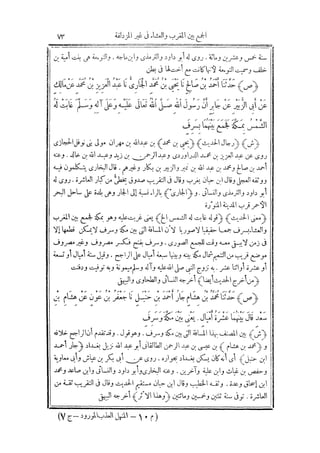 الجمع بين المغرب والعشاء فى غير المزدلفة ٧٣
سنة خمس وعشرين ومائة. روى له أبو داود والترمذى وابن ماجه. والتوءمة هى بنت أمية بن
خلف وسميت التوءمة لأنها كانت مع أختها فى بطن
(ص) حَدَّثَنَا أَحْمَدُ بْنُ صَالِحٍ نَا يَحْيَى بْنُ مُحَمَّدٍ الْجَارِىُّ نَا عَبْدُ الْعَزِيزِ بْنُ مُحَمَّدٍ عَنْ مَالِكٍ
عَنْ أَبِى الزُّبَيْرِ عَنْ جَابِرٍ أَنَّ رَسُولَ اللهِ صَلَّى اللهُ تَعَالَى عَلَيْهِ وَعَلَى آلِهِ وَسَلَّمَ غَابَتْ لَهُ
الشَّمْسُ بِمَكَّةَ فَجَمَعَ بَيْنَهُمَا بِسَرِفَ
(ش) (رجال الحديث) (يحيى بن محمد) بن عبد الله بن مهران مولى بنى نوفل الحجازى
روى عن عبد العزيز بن محمد الدراوردى وعبد الرحمن بن زيد وعبد الله بن خالد. وعنه
أحمد بن صالح ومحمد بن عبد الله بن نمير والزبير بن بكار وغيرهم. قال البخارى يتكلمون فيه
ووثقه العجلى وقال ابن حبان يغرب وقال فى التقريب صدوق يخطئ من كبار العاشرة. روى له
أبو داود والترمذى والنسائى. و (الجارى) بالراء نسبة إلى الجار وهى بلدة على ساحل البحر
الأحمر قرب المدينة المنورة
(معنى الحديث) (قوله غابت له الشمس الخ) يعنى غربت عليه وهو بمكة فجمع بين المغرب
والعشاء بسرف جمعا حقيقيا لا صوريا لأن المسافة التى بين مكة وسرف لا يمكن قطعها إلا
فى زمن لا يبقى معه وقت للجمع الصورى. وسرف بفتح فكسر مصروف وغير مصروف
موضع قريب من التنعيم شمال مكة بينه وبينها سبعة أميال على الراجح. وقيل ستة أميال أو تسعة
أو عشرة أو اثنا عشر. به تزوج النبى صلى الله عليه وآله وسلم ميمونة وبه توفيت ودفنت
(من أخرج الحديث أيضا) أخرجه النسائى والطحاوى والبيهقى
(ص) حَدَّثَنَا مُحَمَّدُ بْنُ هِشَامٍ جَارُ أَحْمَدَ بْنِ حَنْبَلٍ نَا جَعْفَرُ بْنُ عَوْنٍ عَنْ هِشَامِ بْنِ
سَعْدٍ قَالَ بَيْنَهُمَا عَشْرَةُ أَمْيَالٍ. يَعْنِى بَيْنَ مَكَّةَ وَسَرِفَ
(ش) بين المصنف بهذا المسافة التى بين مكة وسرف. وهو قول. وقد تقدم أن الراجح خلافه
و (محمد بن هشام) بن عيسى بن عبد الرحمن الطالقانى أبو عبد الله نزيل بغداد (جار أحمد
ابن حنبل) أى أنه كان يسكن بغداد بجواره. روى عن أبى بكر بن عياش وأبى معاوية
وحفص بن غياث وابن علية وآخرين. وعنه البخارى وأبو داود والنسائى وابن صاعد ومحمد
ابن إسحاق وعدة. وثقه الخطيب وقال ابن حبان مستقيم الحديث وقال فى التقريب ثقة من
العاشرة. توفى سنة ثنتين وخمسين ومائتين (وهذا الأثر) أخرجه البيهقى
(م ١٠ - المنهل العذب المورود - ج ٧)